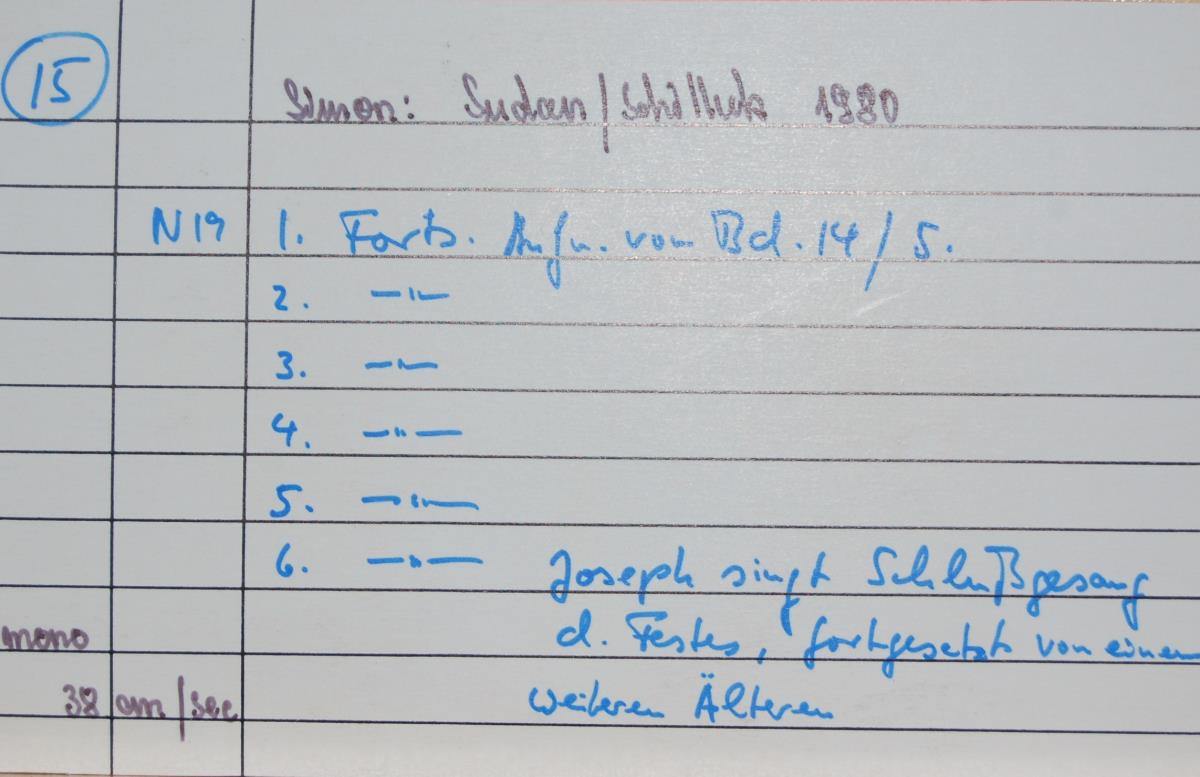 15
Simon: Sudan/Schilluk 1980
N19 1. Forts. Aufn. von Bd. 14/5.
2. —"—
3. —"—
4. —"—
5. —"—
6. —"— Joseph singt Schlußgesang
mono d. Festes, fortgesetzt von einem
38 cm/sec weiteren Älteren